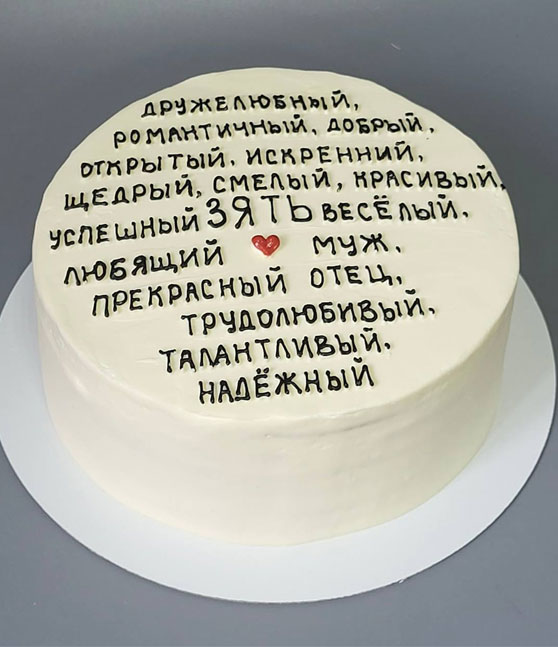 ДРУЖЕЛЮБНЫЙ,
РОМАНТИЧНЫЙ, ДОБРЫЙ,
ОТКРЫТЫЙ, ИСКРЕННИЙ,
ЩЕДРЫЙ, СМЕЛЫЙ, КРАСИВЫЙ,
УСПЕШНЫЙ ЗЯТЬ ВЕСЁЛЫЙ,
ЛЮБЯЩИЙ МУЖ,
ПРЕКРАСНЫЙ ОТЕЦ,
ТРУДОЛЮБИВЫЙ,
ТАЛАНТЛИВЫЙ,
НАДЁЖНЫЙ